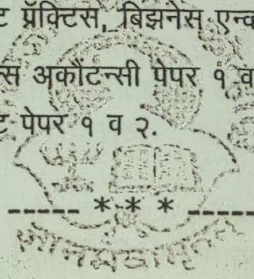 ट प्रॅक्टिस, बिझनेस एन्व
स अकौंटन्सी पेपर १ व
ट पेपर १ व २.
----- * * * -----